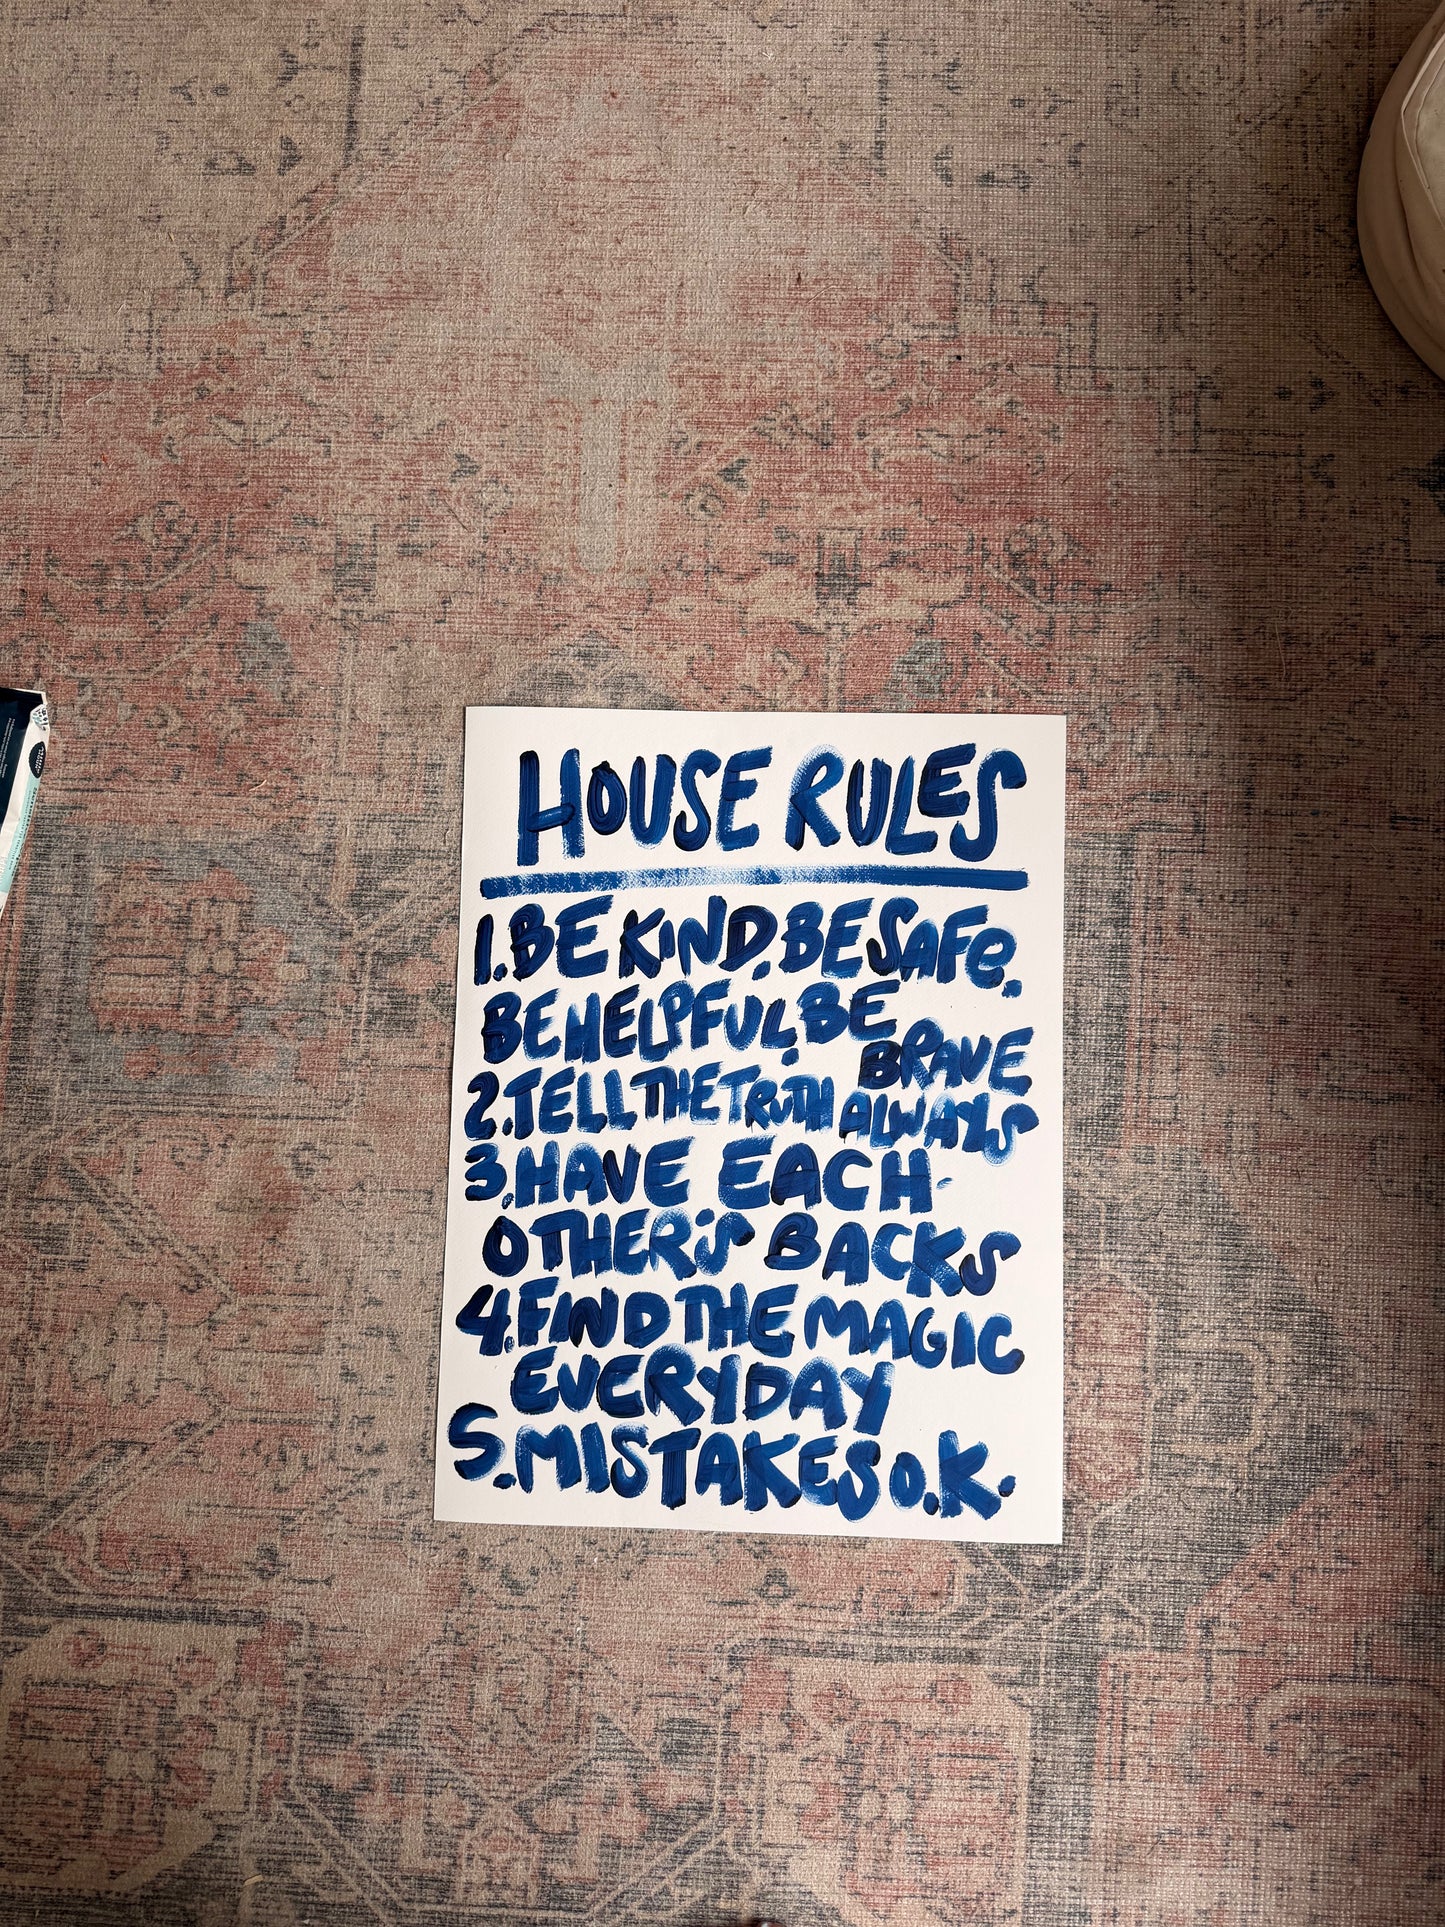 HOUSE RULES
1. BE KIND. BE SAFe.
BE HELPFUL. BE
BRAVE
2. TELL THE TRuTH ALWAYS
3. HAVE EACH-
OTHER'S BACKS
4. FIND THE MAGIC
EVERYDAY
5. MISTAKES O.K.